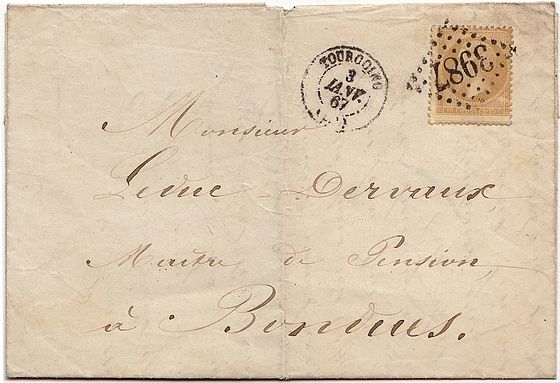 TOURCOING
3
JANV.
67
3987
Monsieur
Leduc Dervaux
Maître de Pension,
à Bondues.